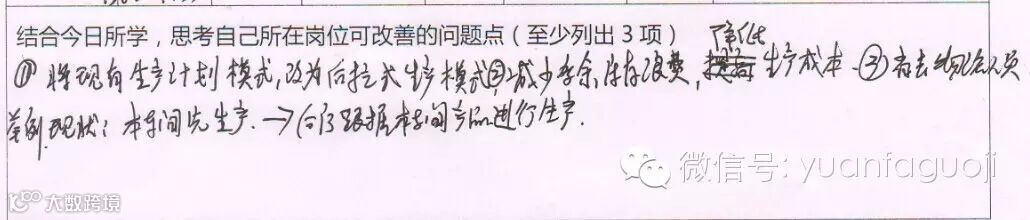 结合今日所学，思考自己所在岗位可改善的问题点（至少列出 3 项）
降低
① 将现有生产计划模式，改为后拉式生产模式 ② 减少多余库存浪费，提高生产成本 ③ 省去物流人员
举例 现状：本车间先生产 → 后序跟据本车间产品进行生产.
微信号: yuanfaguoji
大数跨境